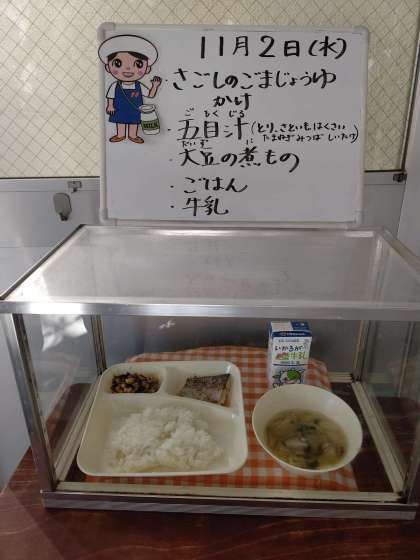 11月2日(水)
・さごしのごまじょうゆ
かけ
ご もく じる
・五目汁(とり、さといも、はくさい
たまねぎ みつば しいたけ)
だいず に
・大豆の煮もの
・ごはん
・牛乳
MILK
いかるが
牛乳